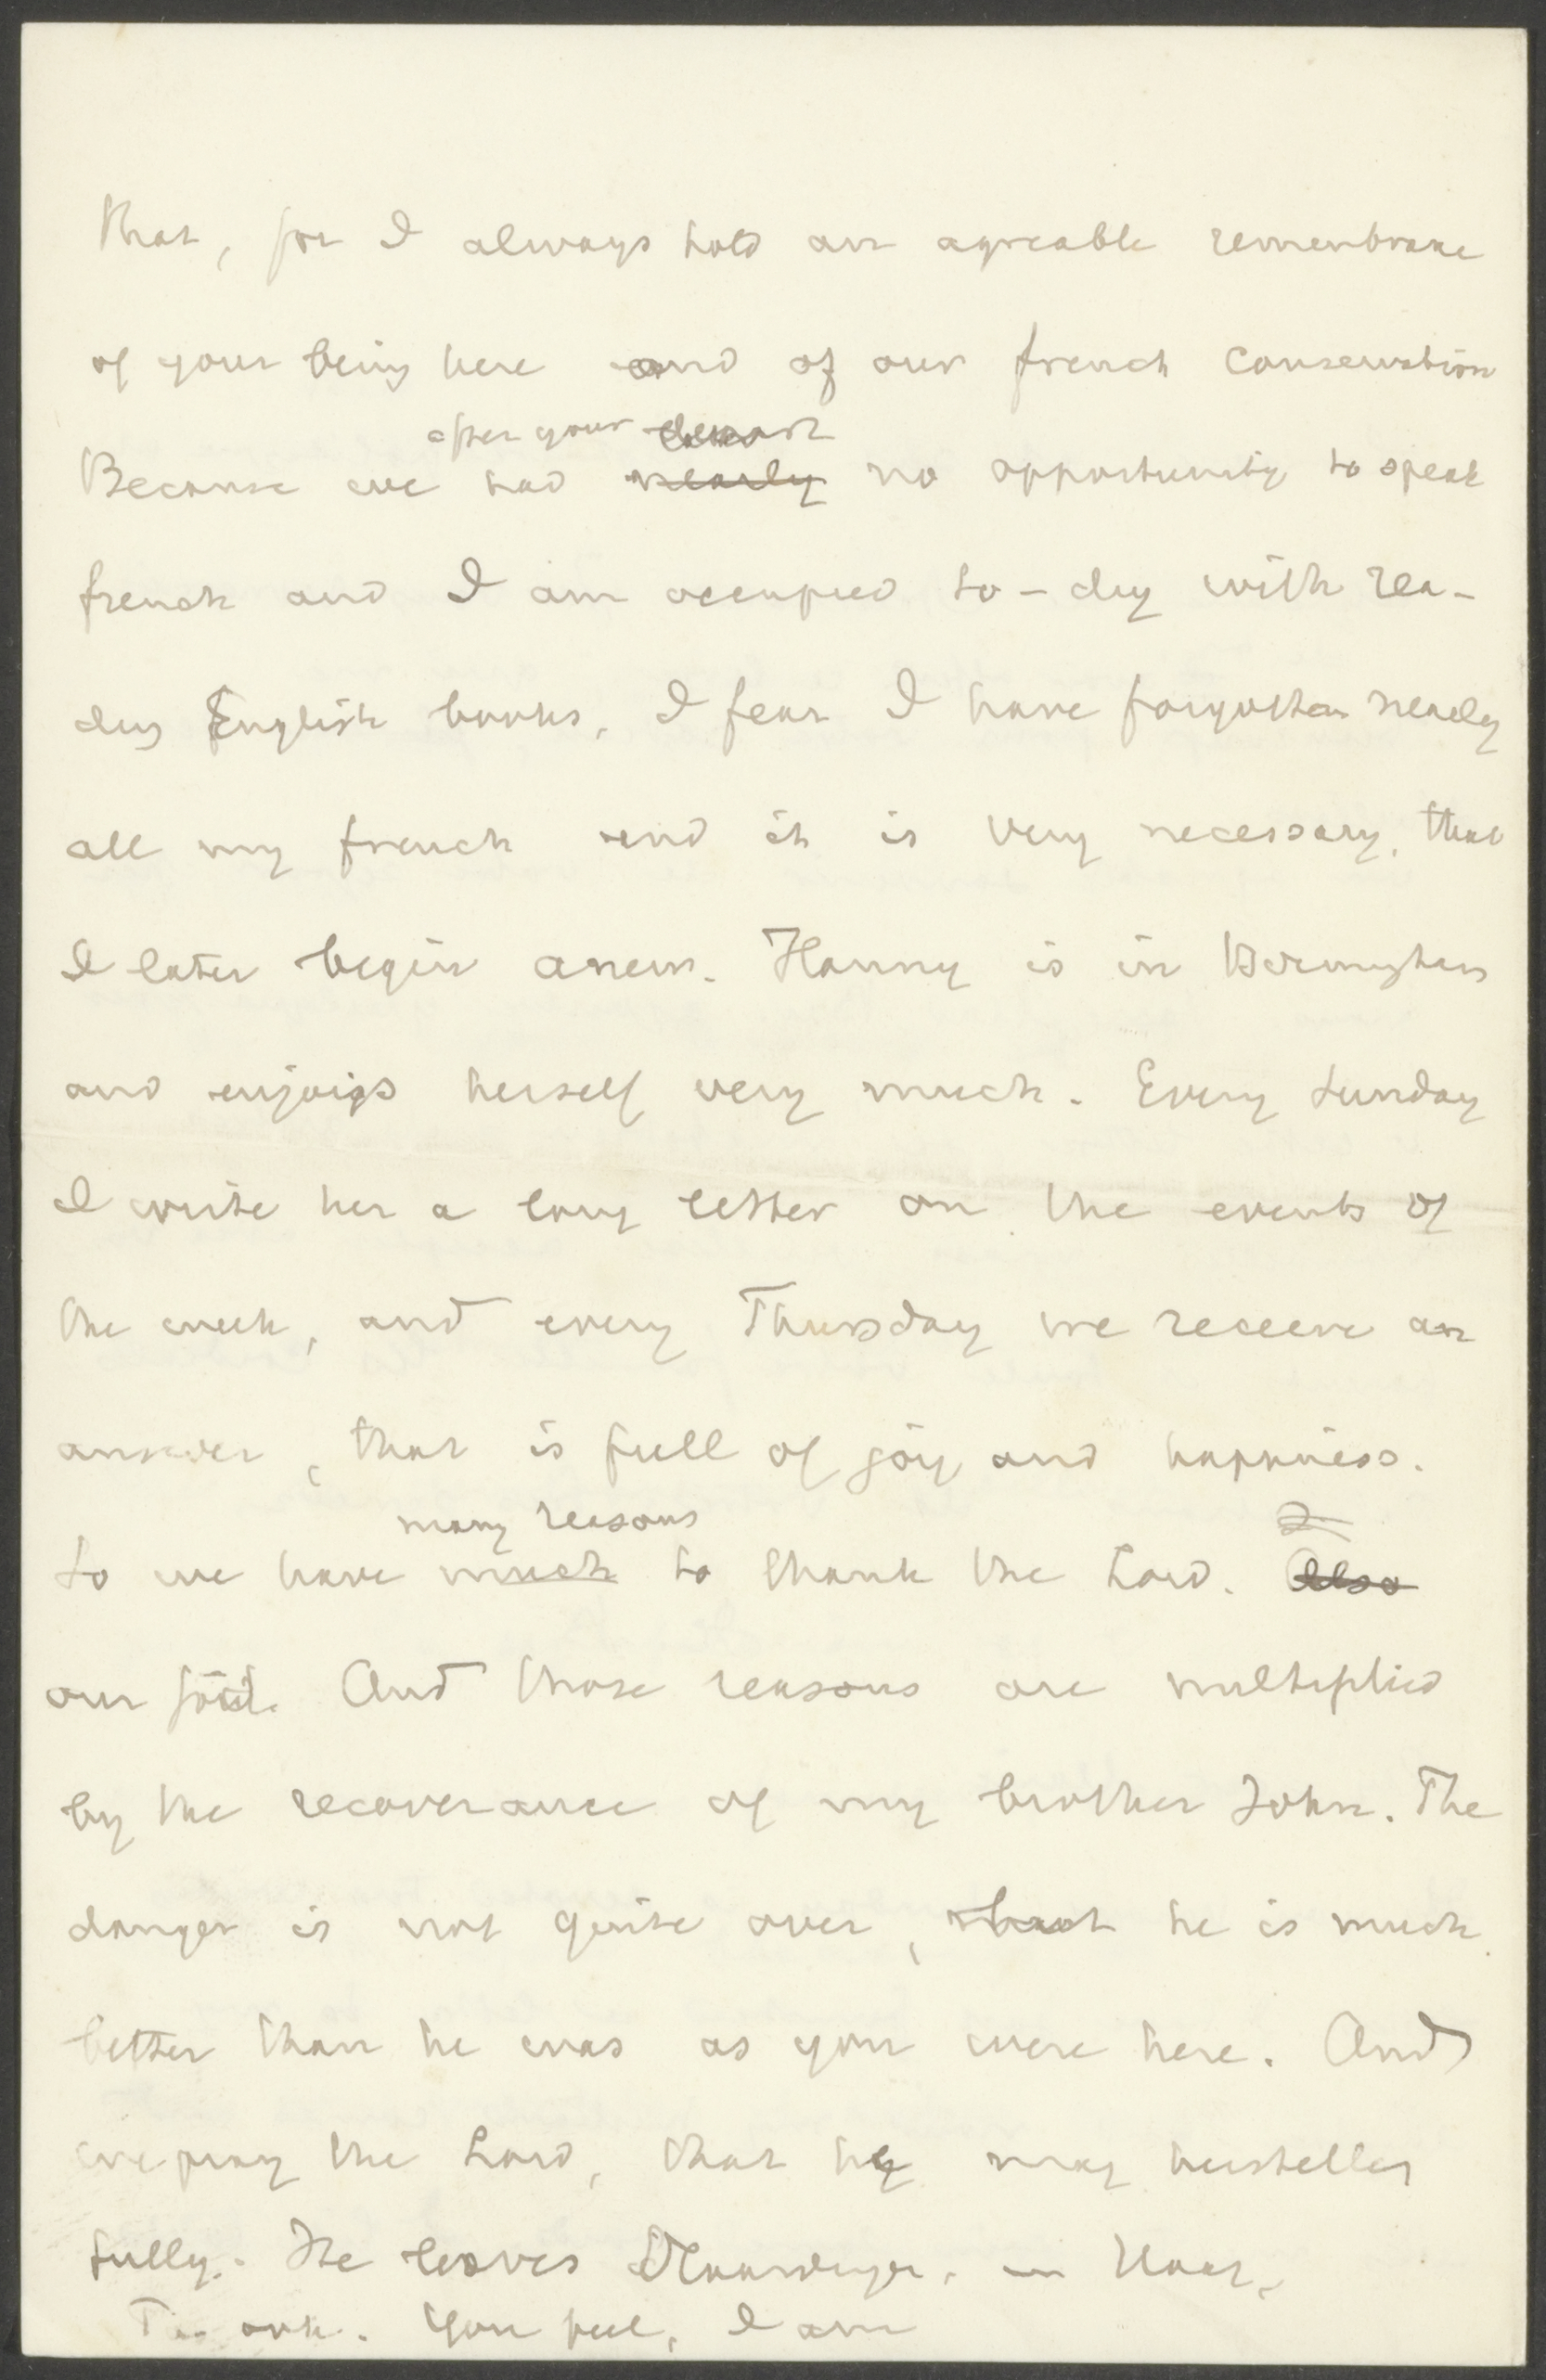 that, for I always hold an agreable remembrance
of your being here and of our french conservation
after your depart
Because we had nearly no opportunity to speak
french and I am occupied to-day with rea-
ding English books, I fear I have forgotten nearly
all my french and it is very necessary, that
I later begin anew. Hanny is in Birmingham
and enjoys herself very much. Every Sunday
I write her a long letter on the events of
the week, and every Thursday we receive an
answer, that is full of joy and happiness.
many reasons
So we have much to thank the Lord. Also
our And those reasons are multiplied
by the recoverance of my brother John. The
danger is not quite over, but he is much
better than he was as you were here. And
we pray the Lord, that he may herstellen
fully. He leaves in
You feel, I am